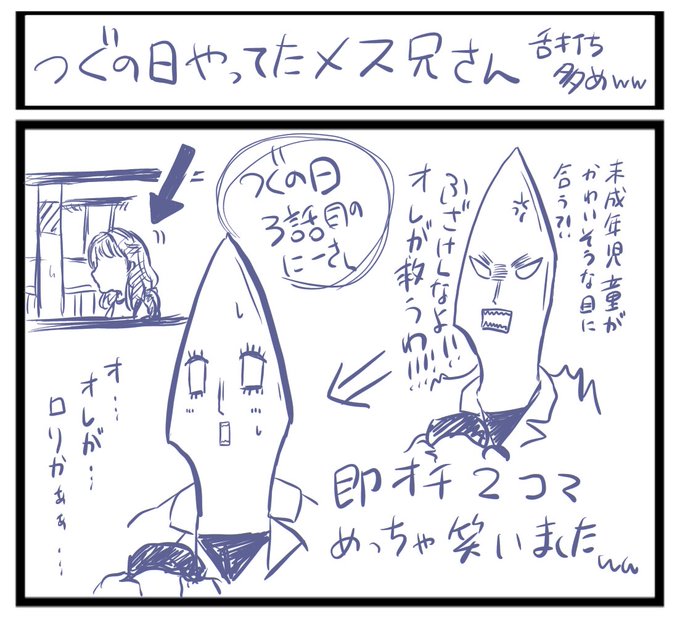 つぐの日やってたメス兄さん
舌打ち
多めww
未成年児童が
かわいそうな目に
合う?!
ふざけんなよ!!
オレが救うわ!!!!
つぐの日
3話目の
にーさん
オ…
オレが…
ロリかぁぁ…
即オチ2コマ
めっちゃ笑いましたww